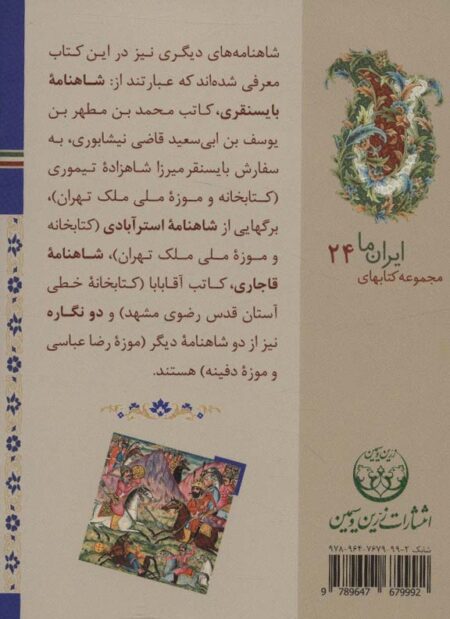 شاهنامه‌های دیگری نیز در این کتاب
معرفی شده‌اند که عبارتند از: شاهنامهٔ
بایسنقری، کاتب محمد بن مطهر بن
یوسف بن ابی‌سعید قاضی نیشابوری، به
سفارش بایسنقر میرزا شاهزادهٔ تیموری
(کتابخانه و موزهٔ ملی ملک تهران)،
برگهایی از شاهنامهٔ استرآبادی (کتابخانه
و موزهٔ ملی ملک تهران)، شاهنامهٔ
قاجاری، کاتب آقابابا (کتابخانهٔ خطی
آستان قدس رضوی مشهد) و دو نگاره
نیز از دو شاهنامهٔ دیگر (موزهٔ رضا عباسی
و موزهٔ دفینه) هستند.
ایران ما ۲۴
مجموعه کتابهای
زرین و سیمین
انتشارات زرین و سیمین
شابک ۲-۹۹-۷۶۷۹-۹۶۴-۹۷۸
9 789647 679992